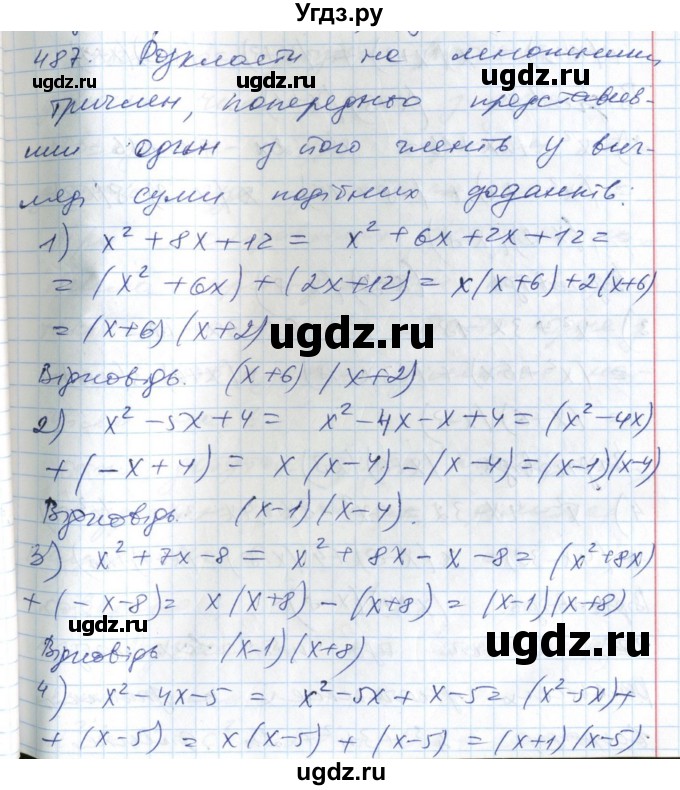 Угдз.ру
487. Розкласти на множники
тричлен, попередньо представив-
ши один з його членів у виг-
ляді суми подібних доданків:
ugdz.ru ugdz.ru
1) x² + 8x + 12 = x² + 6x + 2x + 12 =
= (x² + 6x) + (2x + 12) = x(x+6) + 2(x+6)
= (x+6)(x+2)
ugdz.ru
Відповідь. (x+6)(x+2)
2) x² - 5x + 4 = x² - 4x - x + 4 = (x² - 4x)
ugdz.ru
+ (-x + 4) = x(x-4) - (x-4) = (x-1)(x-4)
Відповідь. (x-1)(x-4).
3) x² + 7x - 8 = x² + 8x - x - 8 = (x² + 8x)
+ (-x-8) = x(x+8) - (x+8) = (x-1)(x+8)
ugdz.ru ugdz.ru
Відповідь (x-1)(x+8)
4) x² - 4x - 5 = x² - 5x + x - 5 = (x² - 5x) +
+ (x-5) = x(x-5) + (x-5) = (x+1)(x-5).
ugdz.ru